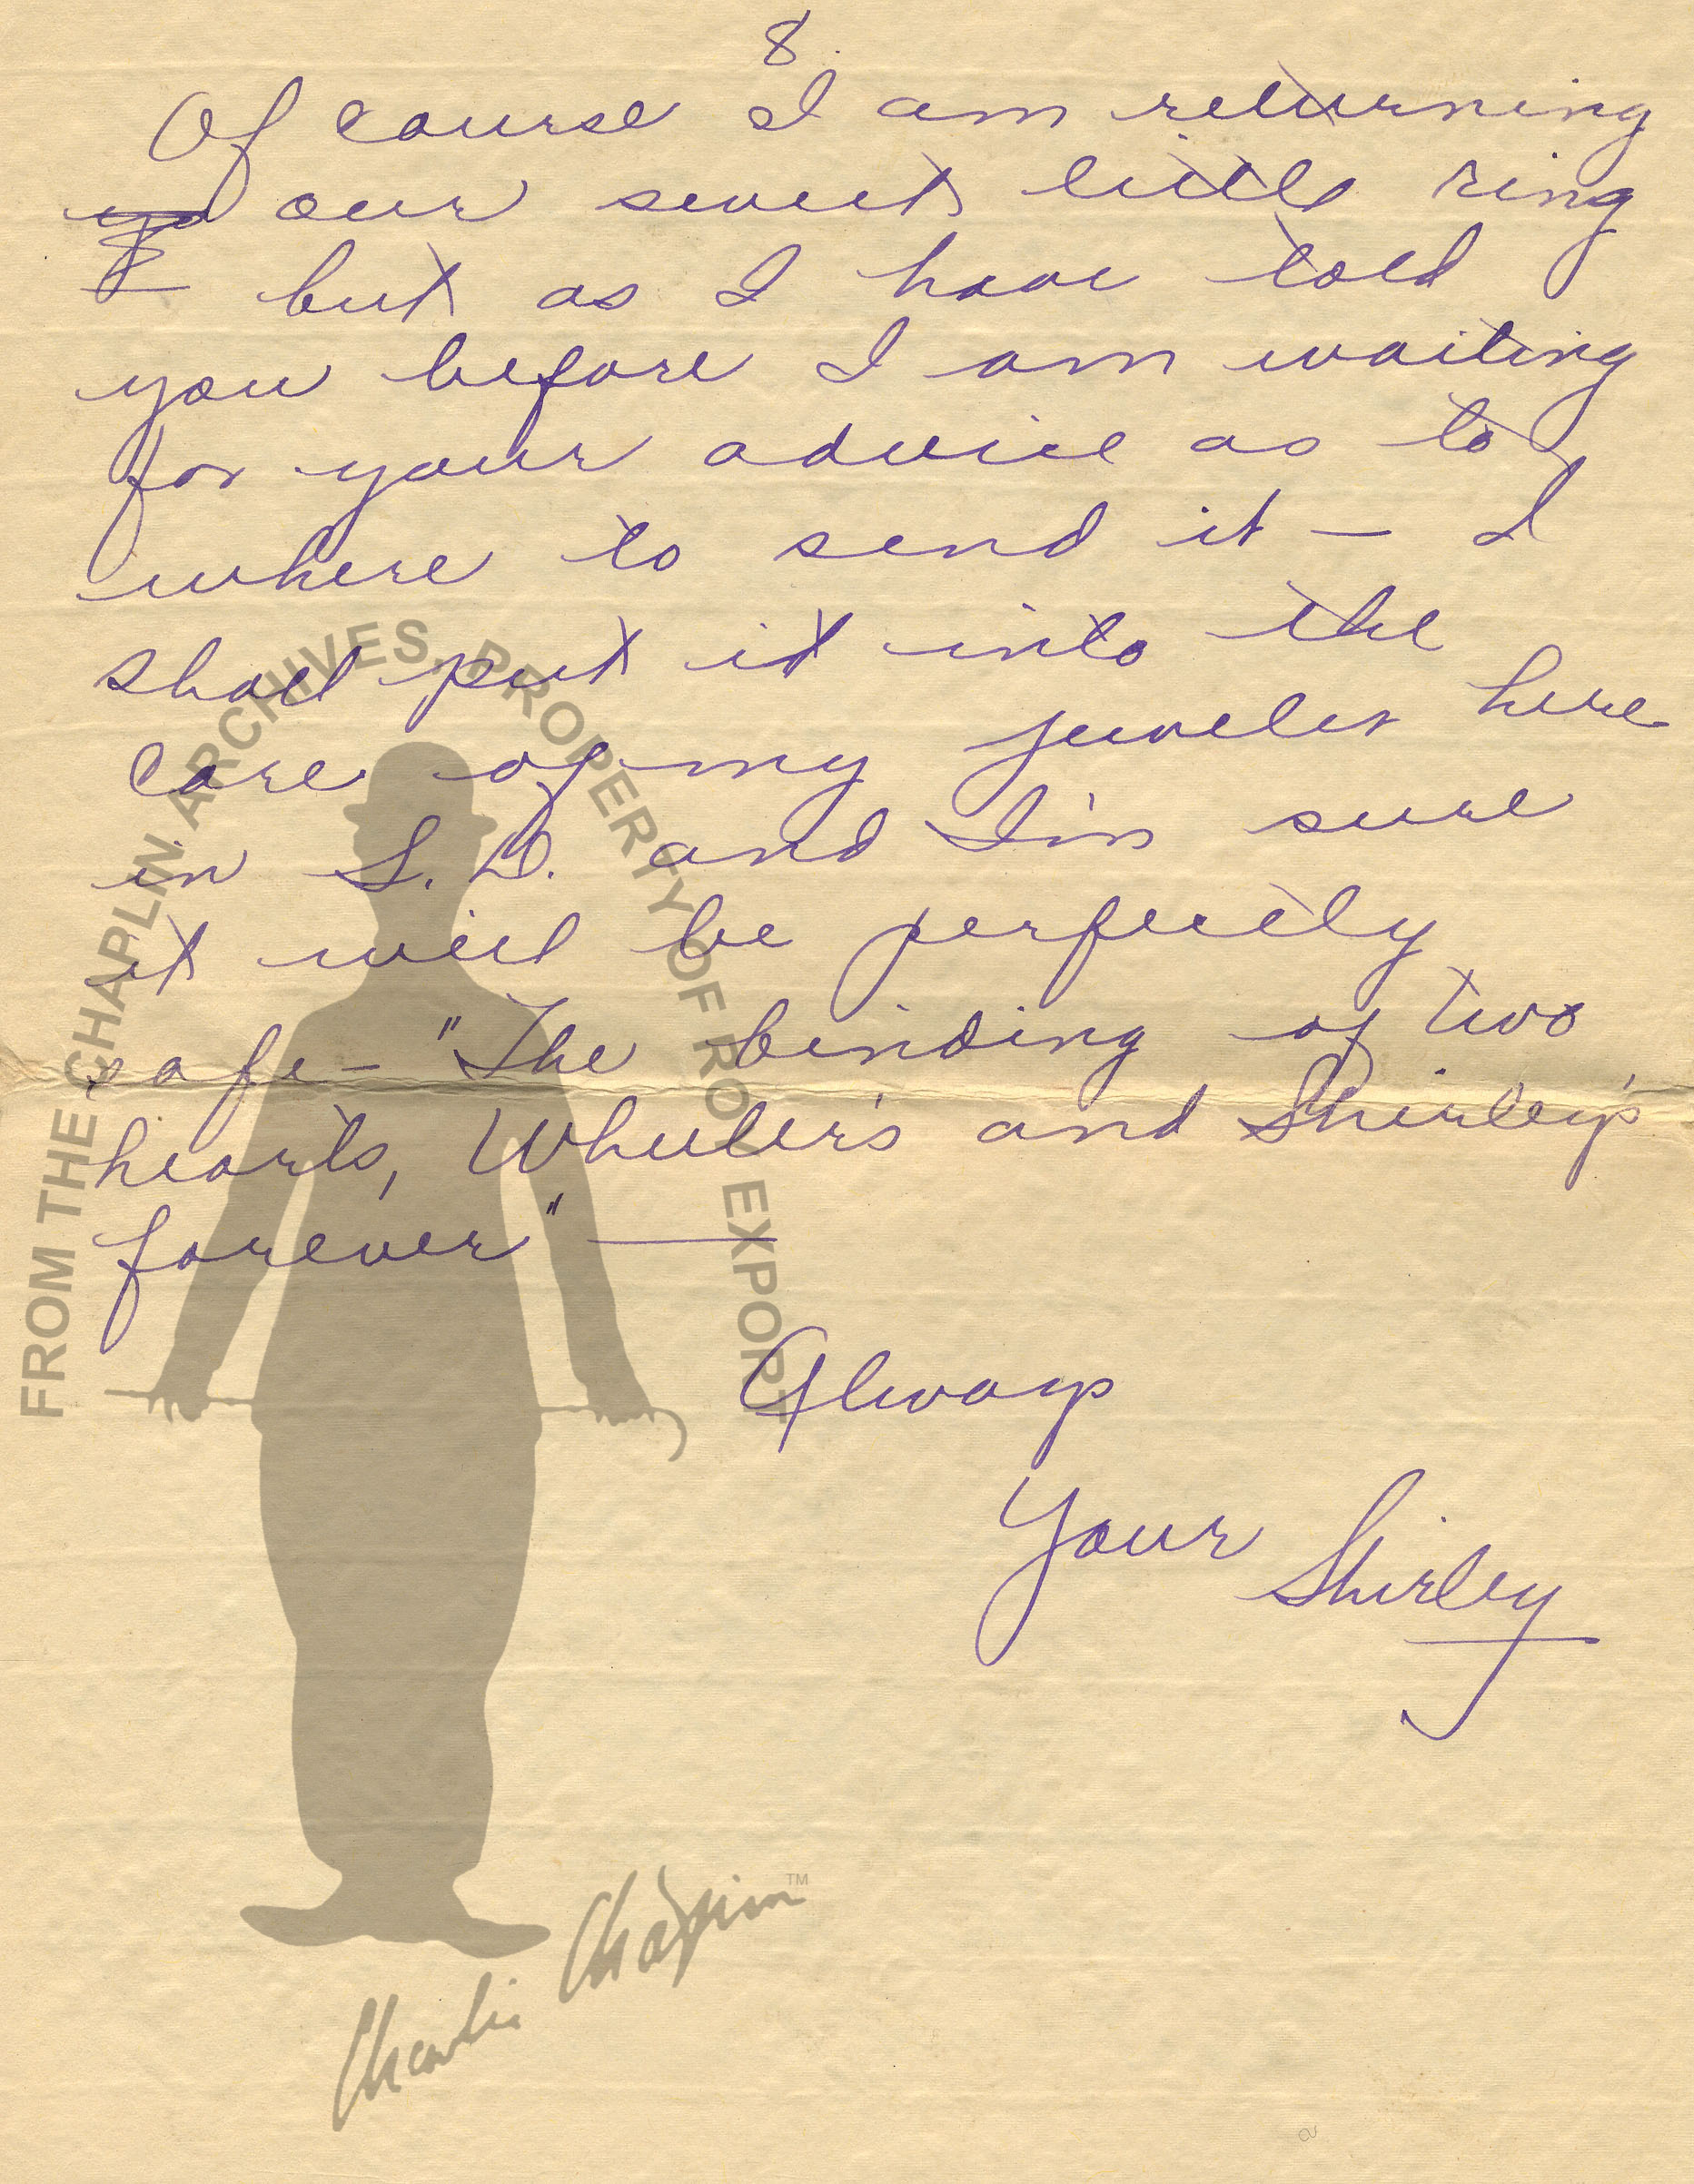 8.
Of course I am returning
our sweet little ring
but as I have told
you before I am waiting
for your advice as to
where to send it – I
shall put it into the
care of my jeweler here
in S.D. and I'm sure
it will be perfectly
safe – "The binding of two
hearts, Wheeler's and Shirley's
forever" —
Always
Your Shirley
FROM THE CHAPLIN ARCHIVES, PROPERTY OF ROY EXPORT
Charlie Chaplin TM